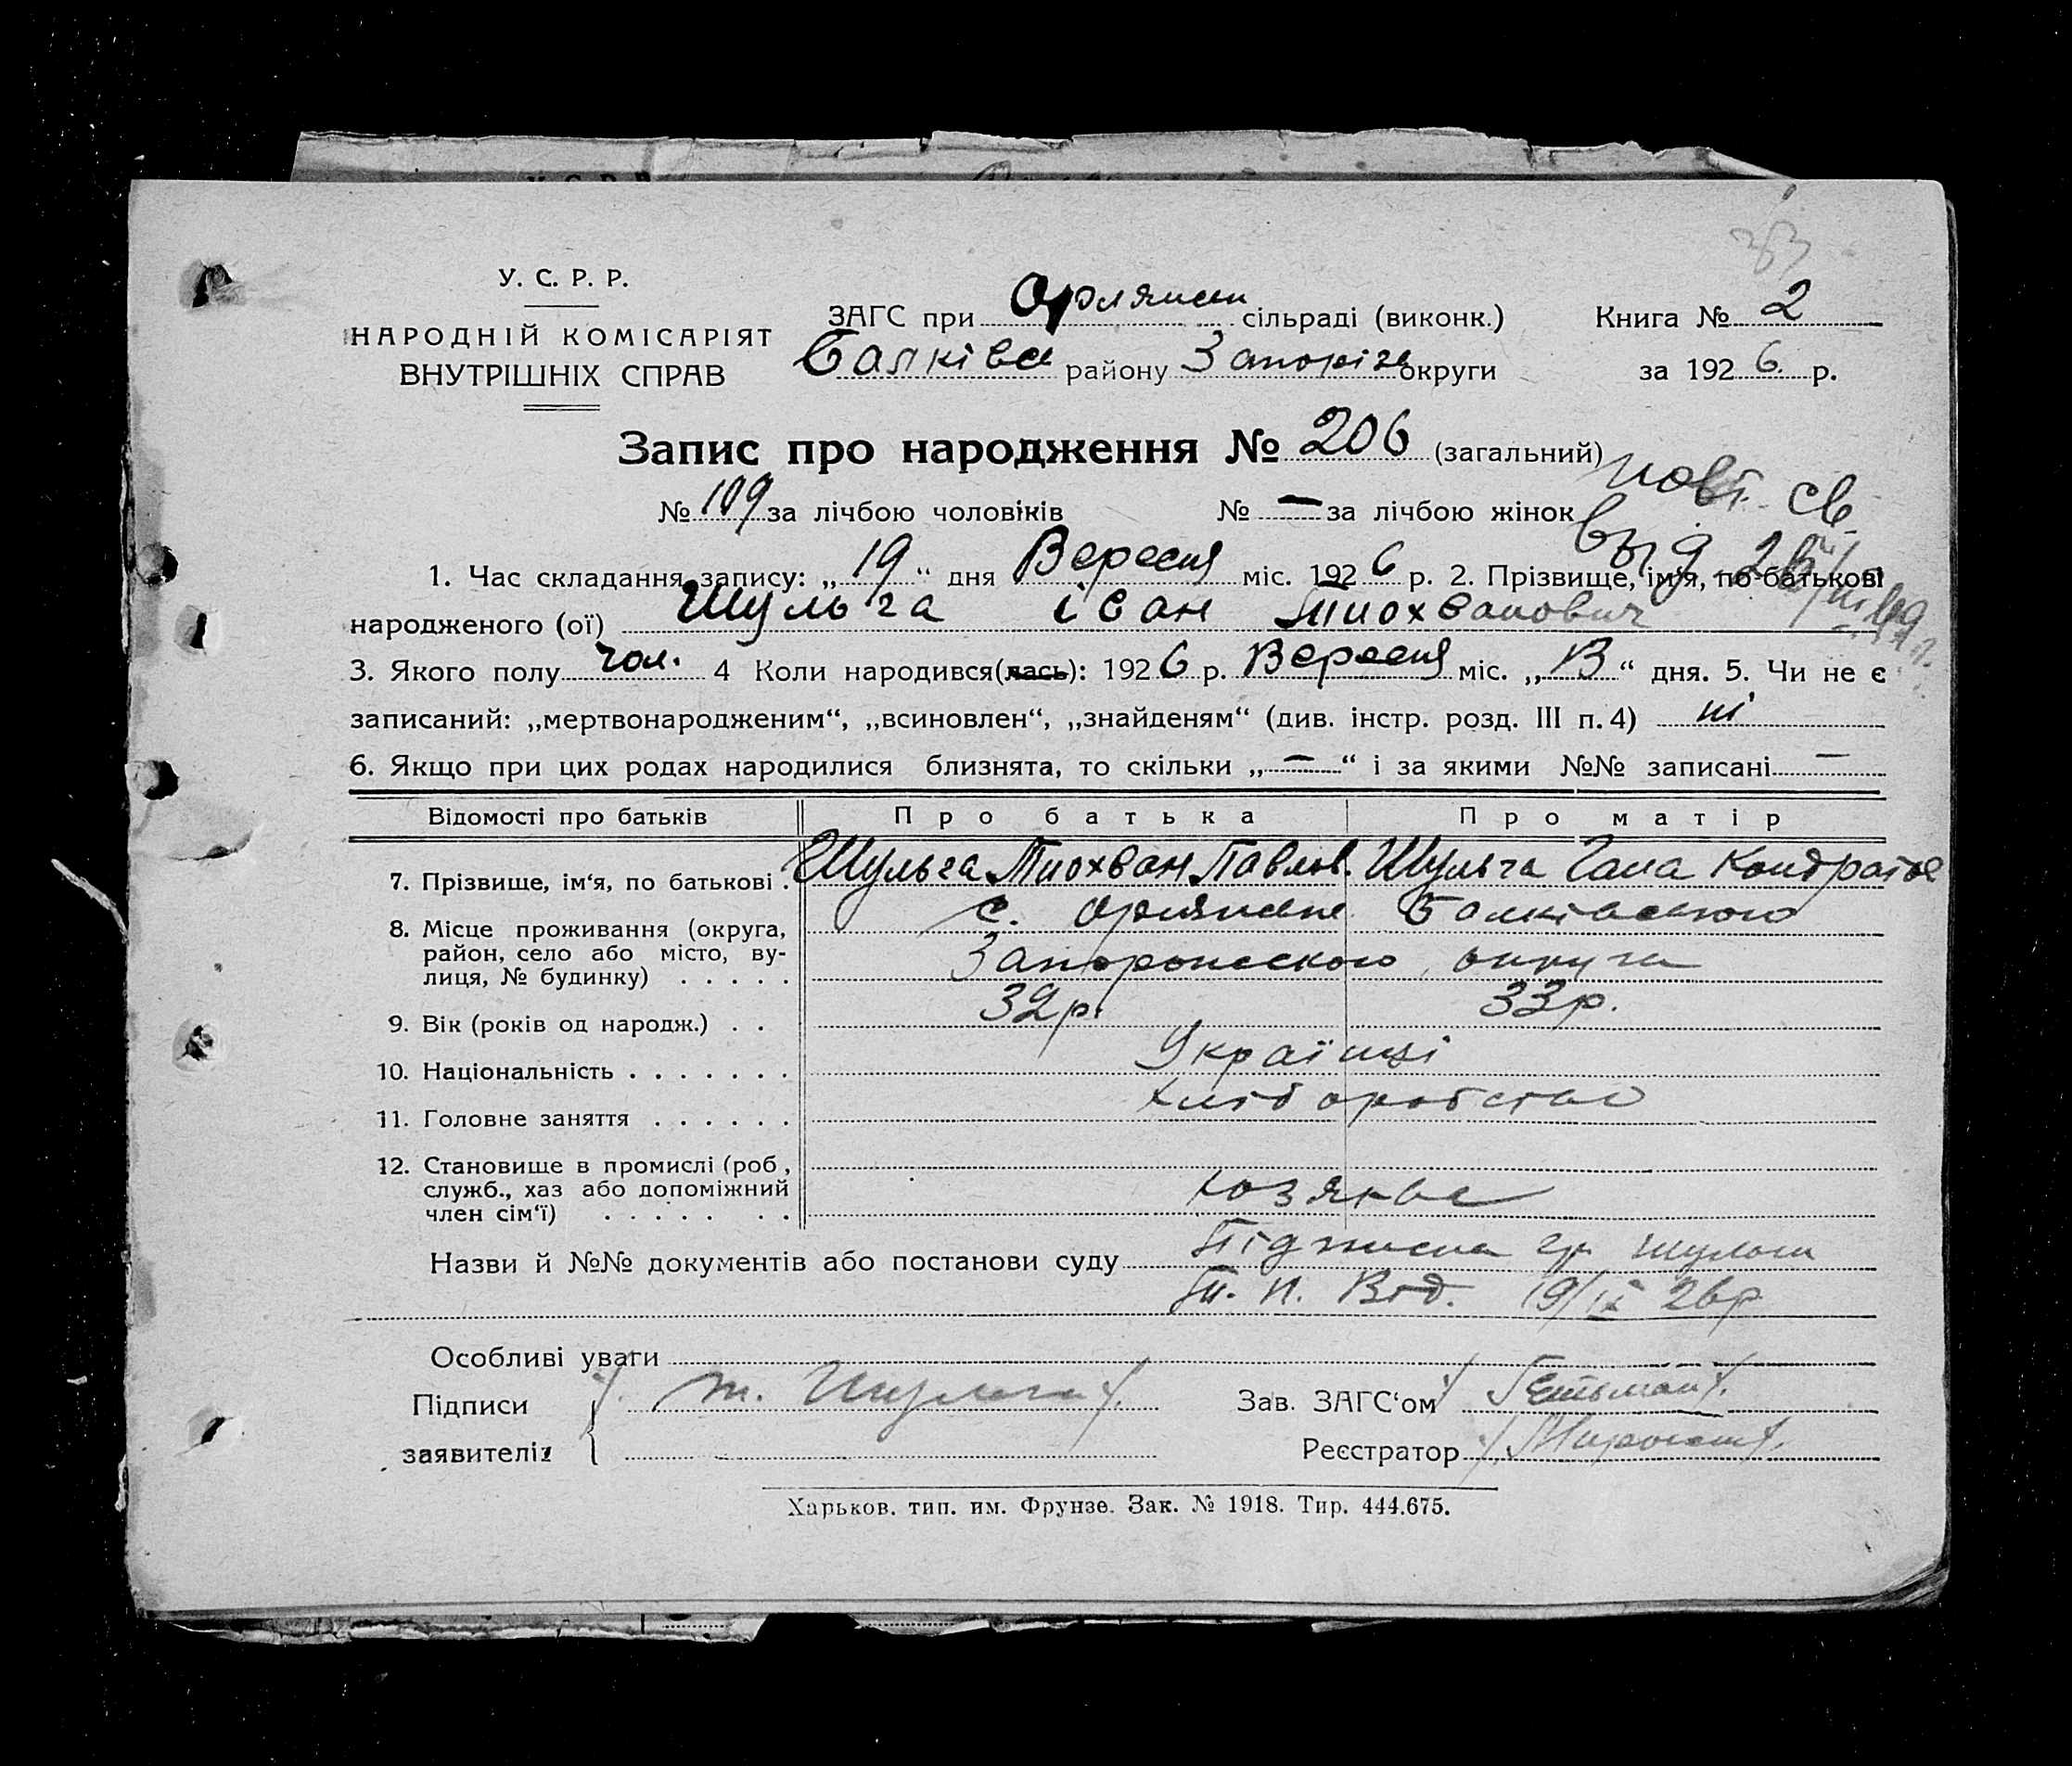 У. С. Р. Р.
НАРОДНІЙ КОМІСАРІЯТ
ВНУТРІШНІХ СПРАВ
ЗАГС при Орлянск сільраді (виконк.)
Балківск район­у Запоріж округи
Книга № 2
за 1926 р.
Запис про народження № 206 (загальний)
нові св.
№ 109 за лічбою чоловіків № — за лічбою жінок
выд. 2
1. Час складання запису: „19“ дня Вересня міс. 1926 р. 2. Прізвище, ім'я, по-батькові
народженого (ої) Шульга Іван Тиохванович
3. Якого полу чол. 4 Коли народився(лась): 1926 р. Вересня міс. „13“ дня. 5. Чи не є
записаний: „мертвонародженим“, „всиновлен“, „знайденям“ (див. інстр. розд. III п. 4) ні
6. Якщо при цих родах народилися близнята, то скільки „—“ і за якими №№ записані —
Відомості про батьків Про батька Про матір
7. Прізвище, ім'я, по батькові . Шульга Тиохван Павлов. Шульга Гана Кондратов
8. Місце проживання (округа, район, село або місто, вулиця, № будинку) . . . . . с. Орлянське Балківського
Запорожского округа
9. Вік (років од народж.) . . 32р. 33р.
10. Національність . . . . . . . Українці
11. Головне заняття . . . . . . Хліборобство
12. Становище в промислі (роб , служб., хаз або допоміжний член сім'ї) . . . . . . . хозяева
Назви й №№ документів або постанови суду Підписка гр Шульги
19/IX 26р
Особливі уваги
Підписи заявителів
Т. Шульга
Зав. ЗАГС'ом Гетьман
Реєстратор
Харьков. тип. им. Фрунзе. Зак. № 1918. Тир. 444.675.